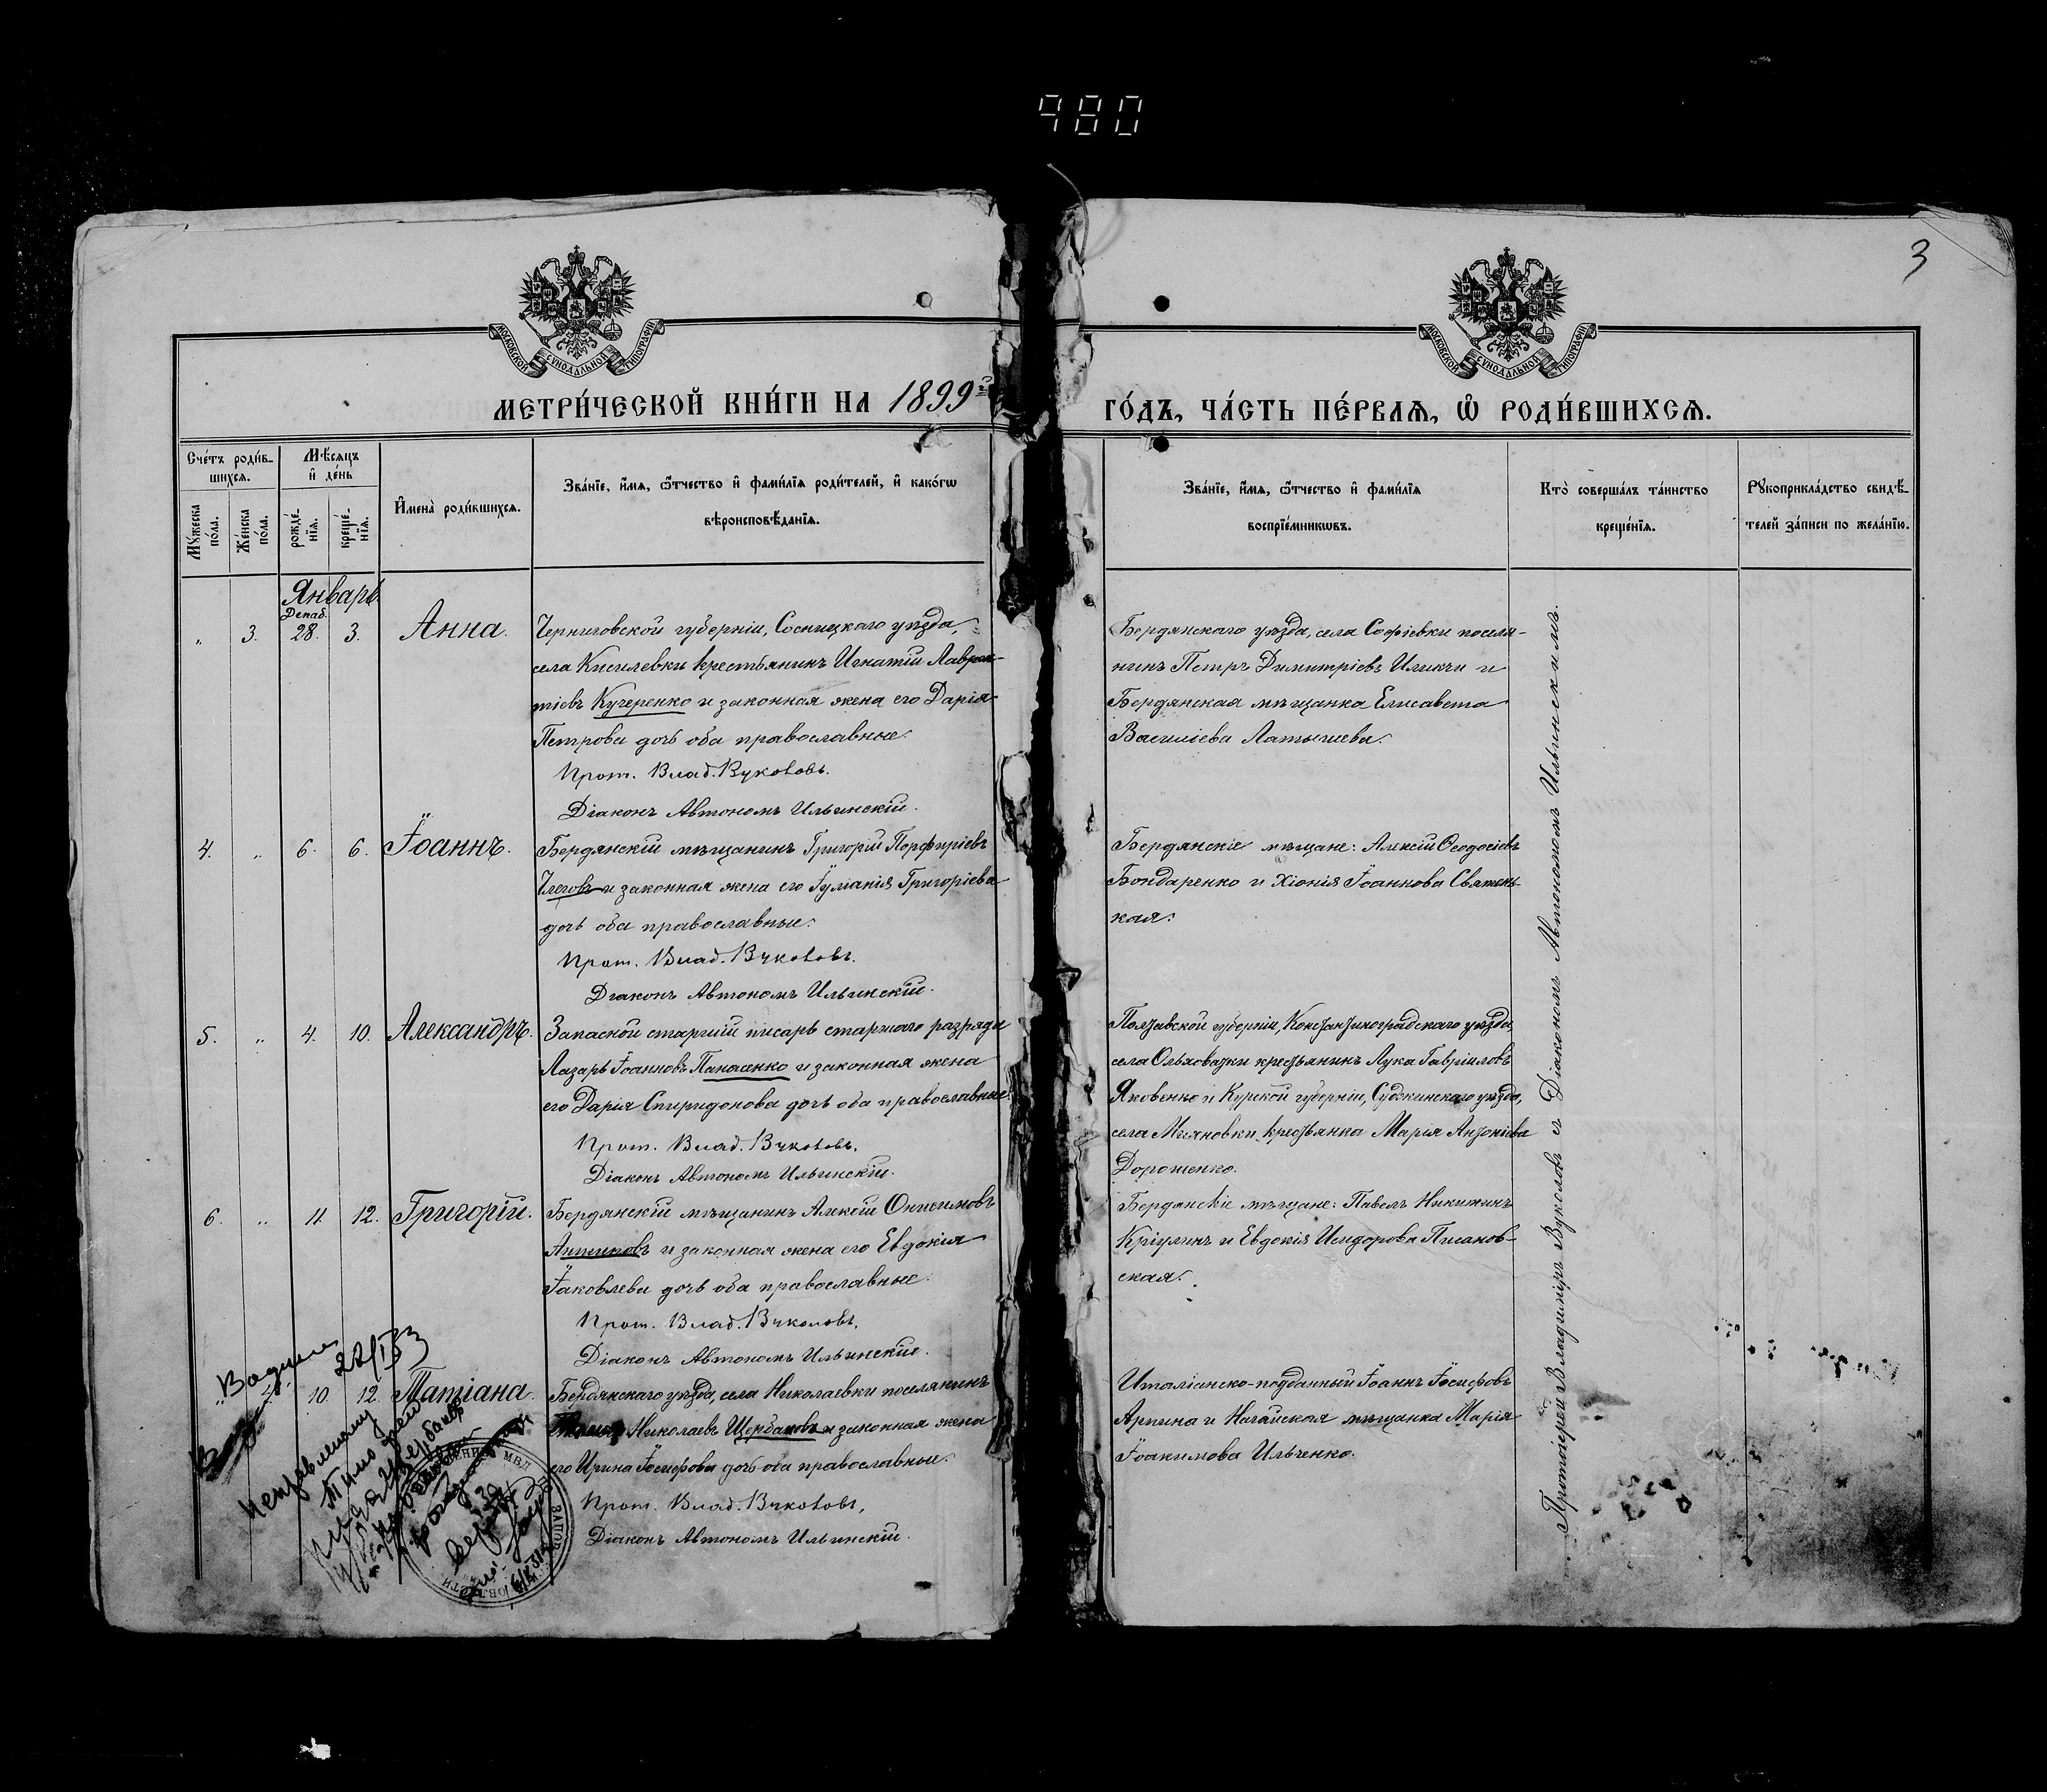 480
3
МОСКОВСКОЙ СѴНОДАЛЬНОЙ ТИПОГРАФІИ
МОСКОВСКОЙ СѴНОДАЛЬНОЙ ТИПОГРАФІИ
МЕТРИ́ЧЕСКОЙ КНИ́ГИ НА 1899й
ГО́ДЪ, ЧА́СТЬ ПЕ́РВАѦ, Ѽ РОДИ́ВШИХСѦ.
Сче́тъ роди́в-
шихсѧ.
Мѣ́сѧцъ
и҆ де́нь
Мꙋ́жеска
по́ла.
Же́нска
по́ла.
рожде́-
нїѧ.
креще́-
нїѧ.
И҆мена̀ роди́вшихсѧ.
Зва́нїе, и҆́мѧ, ѻ҆́тчество и҆ фами́лїѧ роди́телей, и҆ како́гѡ
вѣроисповѣ́данїѧ.
Зва́нїе, и҆́мѧ, ѻ҆́тчество и҆ фами́лїѧ
воспрїе́мникѡвъ.
Кто̀ соверша́лъ та́инство
креще́нїѧ.
Рꙋкоприкла́дство свидѣ́-
телей за́писи по жела́нїю.
Январь.
Декаб.
" 3. 28. 3. Анна.
Черниговской губерніи, Сосницкаго уѣзда,
села Киселевки крестьянинъ Игнатій Лаврен-
тіевъ Кучеренко и законная жена его Дарія
Петрова дочь оба православные.
Прот. Влад. Вуколовъ.
Діаконъ Автономъ Ильинскій.
Бердянскаго уѣзда, села Софіевки поселя-
нинъ Петръ Димитріевъ Иликчи и
Бердянская мѣщанка Елисавета
Василіева Латышева.
4. " 6. 6. Іоаннъ.
Бердянскій мѣщанинъ Григорій Порфиріевъ
и законная жена его Іуліанія Григоріева
дочь оба православные.
Прот. Влад. Вуколовъ.
Діаконъ Автономъ Ильинскій.
Бердянскіе мѣщане: Алексій Ѳеодосіевъ
Бондаренко и Хіонія Іоаннова Святень-
кая.
5. " 4. 10. Александръ.
Запасной старшій писарь старшаго разряда
Лазарь Іоанновъ Панасенко и законная жена
его Дарія Спиридонова дочь оба православные.
Прот. Влад. Вуколовъ.
Діаконъ Автономъ Ильинскій.
Полтавской губерніи, Константиноградскаго уѣзда,
села Ольховатки крестьянинъ Лука Гавріиловъ
Яковенко и Курской губерніи, Суджинскаго уѣзда,
села крестьянка Марія Антоніева
Дорошенко.
6. " 11. 12. Григорій.
Бердянскій мѣщанинъ Алексій Онисимовъ
Антиповъ и законная жена его Евдокія
Іаковлева дочь оба православные.
Прот. Влад. Вуколовъ.
Діаконъ Автономъ Ильинскій.
Бердянскіе мѣщане: Павелъ Никитинъ
Кріулинъ и Евдокія Исидорова Писанов-
ская.
" 10. 12. Татіана.
Бердянскаго уѣзда, села Николаевки поселянинъ
Николаевъ Щербаковъ и законная жена
его Ирина Іосифова дочь оба православные.
Прот. Влад. Вуколовъ,
Діаконъ Автономъ Ильинскій.
Италіанско-подданный Іоаннъ Іосифовъ
Арпина и Ногайская мѣщанка Марія
Іоакимова Ильченко.
Протоіерей Владиміръ Вуколовъ съ Діакономъ Автономомъ Ильинскимъ.